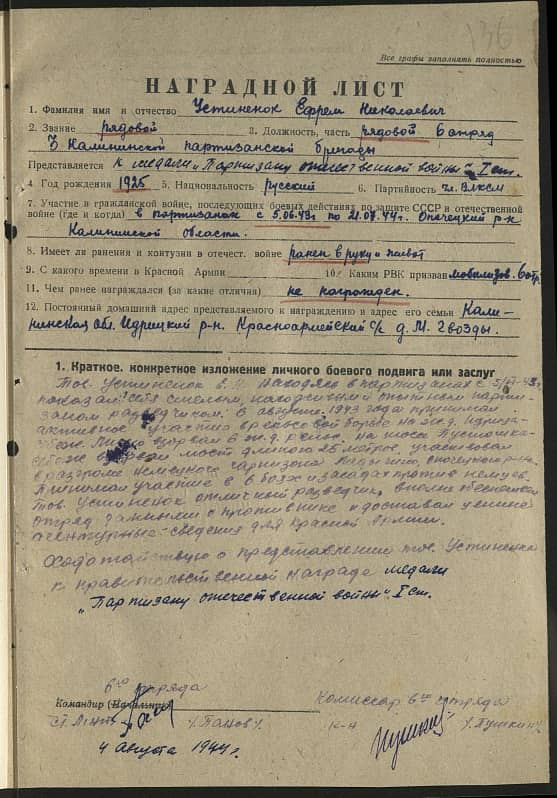 136
Все графы заполнять полностью
НАГРАДНОЙ ЛИСТ
1. Фамилия имя и отчество Устиненок Ефрем Николаевич
2. Звание рядовой 3. Должность, часть рядовой 6 отряд
3 Калининской партизанской бригады
Представляется к медали „Партизану отечественной войны" I ст.
4 Год рождения 1925 5. Национальность русский 6. Партийность чл. ВЛКСМ
7. Участие в гражданской войне, последующих боевых действиях по защите СССР и отечественной
войне (где и когда) в партизанах с 5.06.43г. по 21.07.44г. Опочецкий р-н
Калининской области.
8. Имеет ли ранения и контузии в отечест. войне ранен в руку и живот
9. С какого времени в Красной Армии 10. Каким РВК призван мобилизов. 6 отр.
11. Чем ранее награждался (за какие отличия) не награжден.
12. Постоянный домашний адрес представляемого к награждению и адрес его семьи Кали-
нинская обл. Идрицкий р-н. Красноармейский с/с д. М. Гвозды.
1. Краткое. конкретное изложение личного боевого подвига или заслуг
Тов. Устиненок находясь в партизанах с
показал себя смелым, находчивым и опытным парти-
заном разведчиком. В августе 1943 года принимал
активное участие в рельсовой борьбе на ж.д. Идрица-
взорвал 6 ж.д. рельс. на шоссе Пустошка-
мост длиною 25 метров, участвовал
в разгроме немецкого гарнизона Опочецкого р-на.
Принимал участие в 6 боях и засадах против немцев.
Тов. Устиненок отличный разведчик, вполне обеспечивал
отряд данными о противнике и доставал ценные
агентурные сведения для Красной Армии.
Ходатайствую о представлении тов. Устиненка
к правительственной награде медали
„Партизану отечественной войны" I ст.
6го отряда
Командир (Начальник)
Ст. Лейт. /Панов/.
Комиссар 6го отряда
к-н /Пушкин/
4 августа 1944 г.